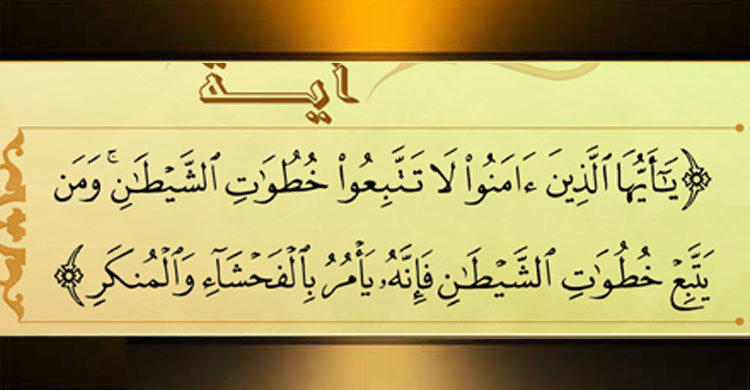 آية
﴿يَـٰٓأَيُّهَا ٱلَّذِينَ ءَامَنُوا۟ لَا تَتَّبِعُوا۟ خُطُوَٰتِ ٱلشَّيْطَـٰنِ ۚ وَمَن
يَتَّبِعْ خُطُوَٰتِ ٱلشَّيْطَـٰنِ فَإِنَّهُۥ يَأْمُرُ بِٱلْفَحْشَآءِ وَٱلْمُنكَرِ﴾